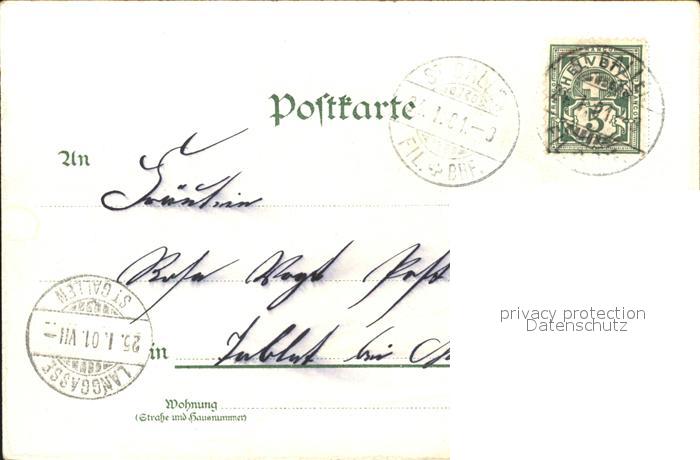 Postkarte
ST. GALLEN
24. I. 01. – 3
FIL. + BRF.
FRANCO
5
An
Fräulein
Rosa Vogt Post
privacy protection
Datenschutz
ST GALLEN
25. I. 01. VII –
LANGGASSE
in Tablat bei
Wohnung
(Straße und Hausnummer)